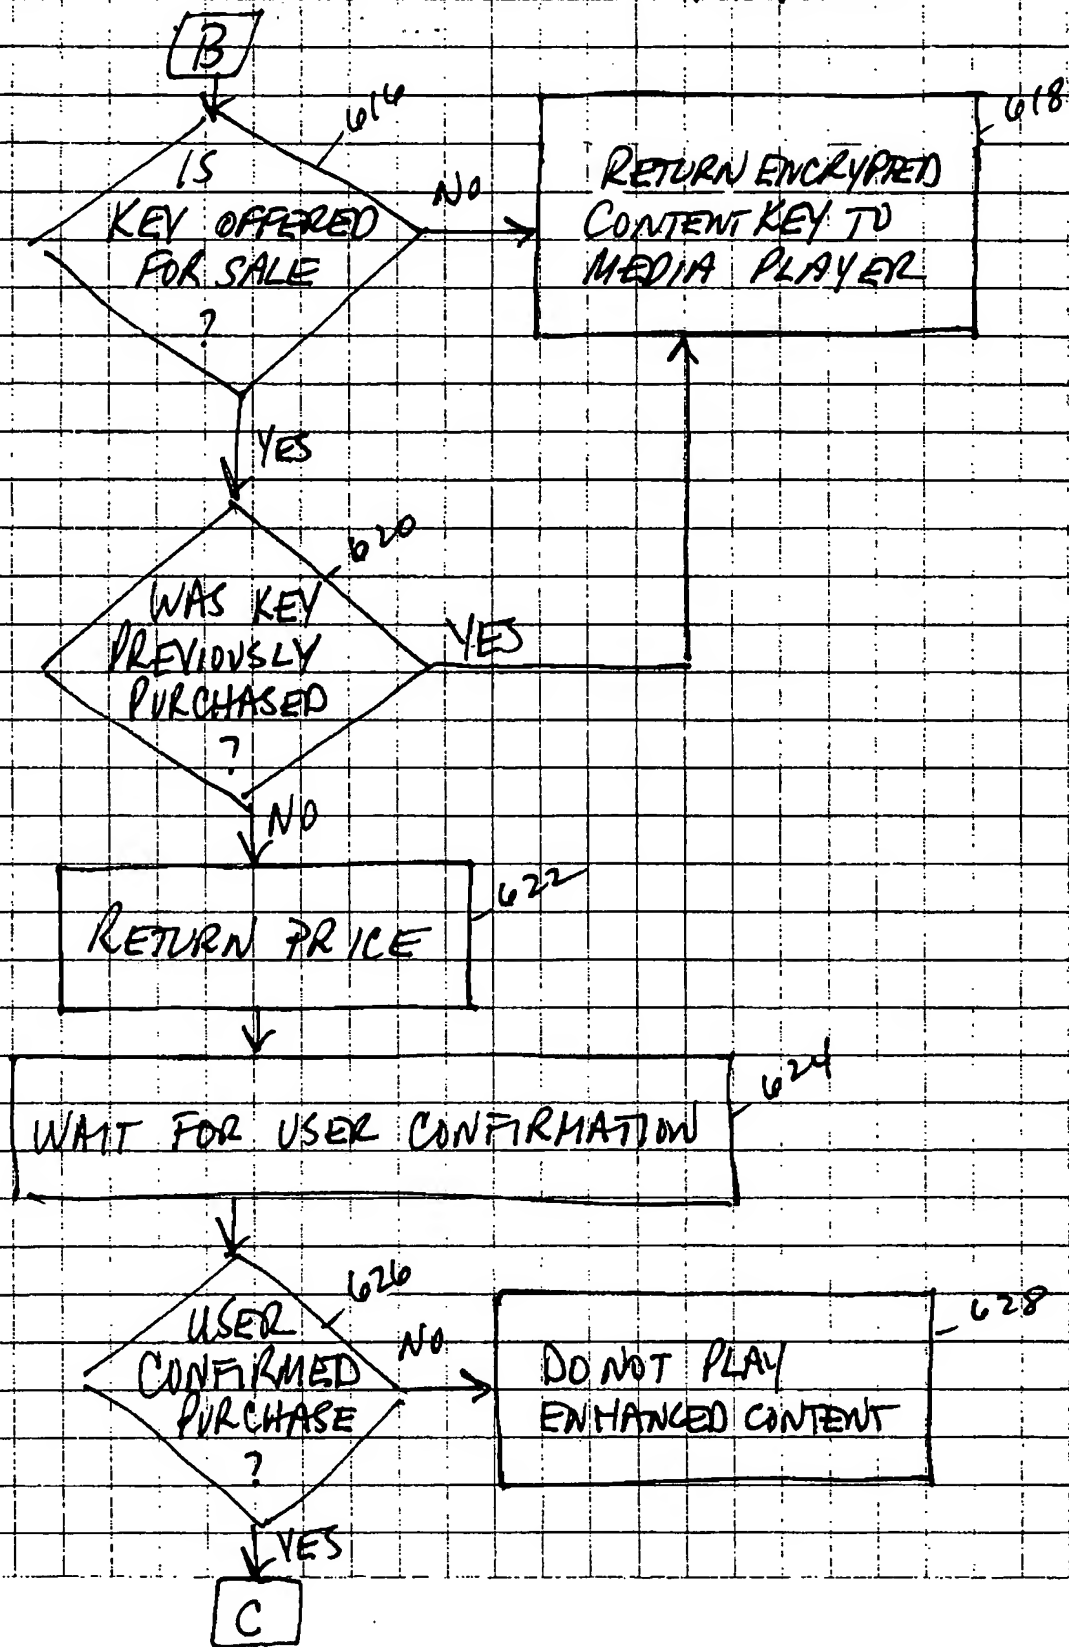 B
616
IS
KEY OFFERED
FOR SALE
?
NO
618
RETURN ENCRYPTED
CONTENT KEY TO
MEDIA PLAYER
YES
620
WAS KEY
PREVIOUSLY
PURCHASED
?
YES
NO
622
RETURN PRICE
624
WAIT FOR USER CONFIRMATION
626
USER
CONFIRMED
PURCHASE
?
NO
628
DO NOT PLAY
ENHANCED CONTENT
YES
C